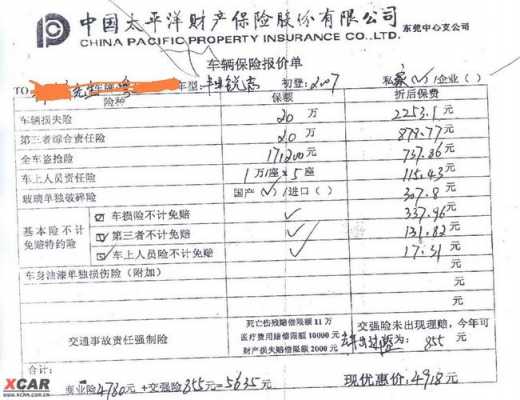 中国太平洋财产保险股份有限公司 东莞中心支公司
CHINA PACIFIC PROPERTY INSURANCE CO.,LTD.
车辆保险报价单
TO 先生 车型: 锐志 初登: 2007 私家(√)/企业( )
险种 保额 折后保费
车辆损失险 20 万 2253.1 元
第三者综合责任险 20 万 878.77 元
全车盗抢险 171200元 737.86 元
车上人员责任险 1万/座×5座 115.43 元
玻璃单独破碎险 国产(√)/进口( ) 307.8 元
基本险不计免赔特约险
☑ 车损险不计免赔 √ 337.96 元
☑ 第三者不计免赔 √ 131.82 元
☑ 车上人员险不计免赔 √ 17.31 元
车身油漆单独损伤险(附加) 元
元
元
交通事故责任强制险
死亡伤残赔偿限额 11 万
医疗费用赔偿限额 10000 元
财产损失赔偿限额 2000 元
交强险未出现理赔,今年可
为: 855 元
合计:
商业险4780元+交强险855元=5635元 现优惠价:4918元
XCAR
WWW.XCAR.COM.CN